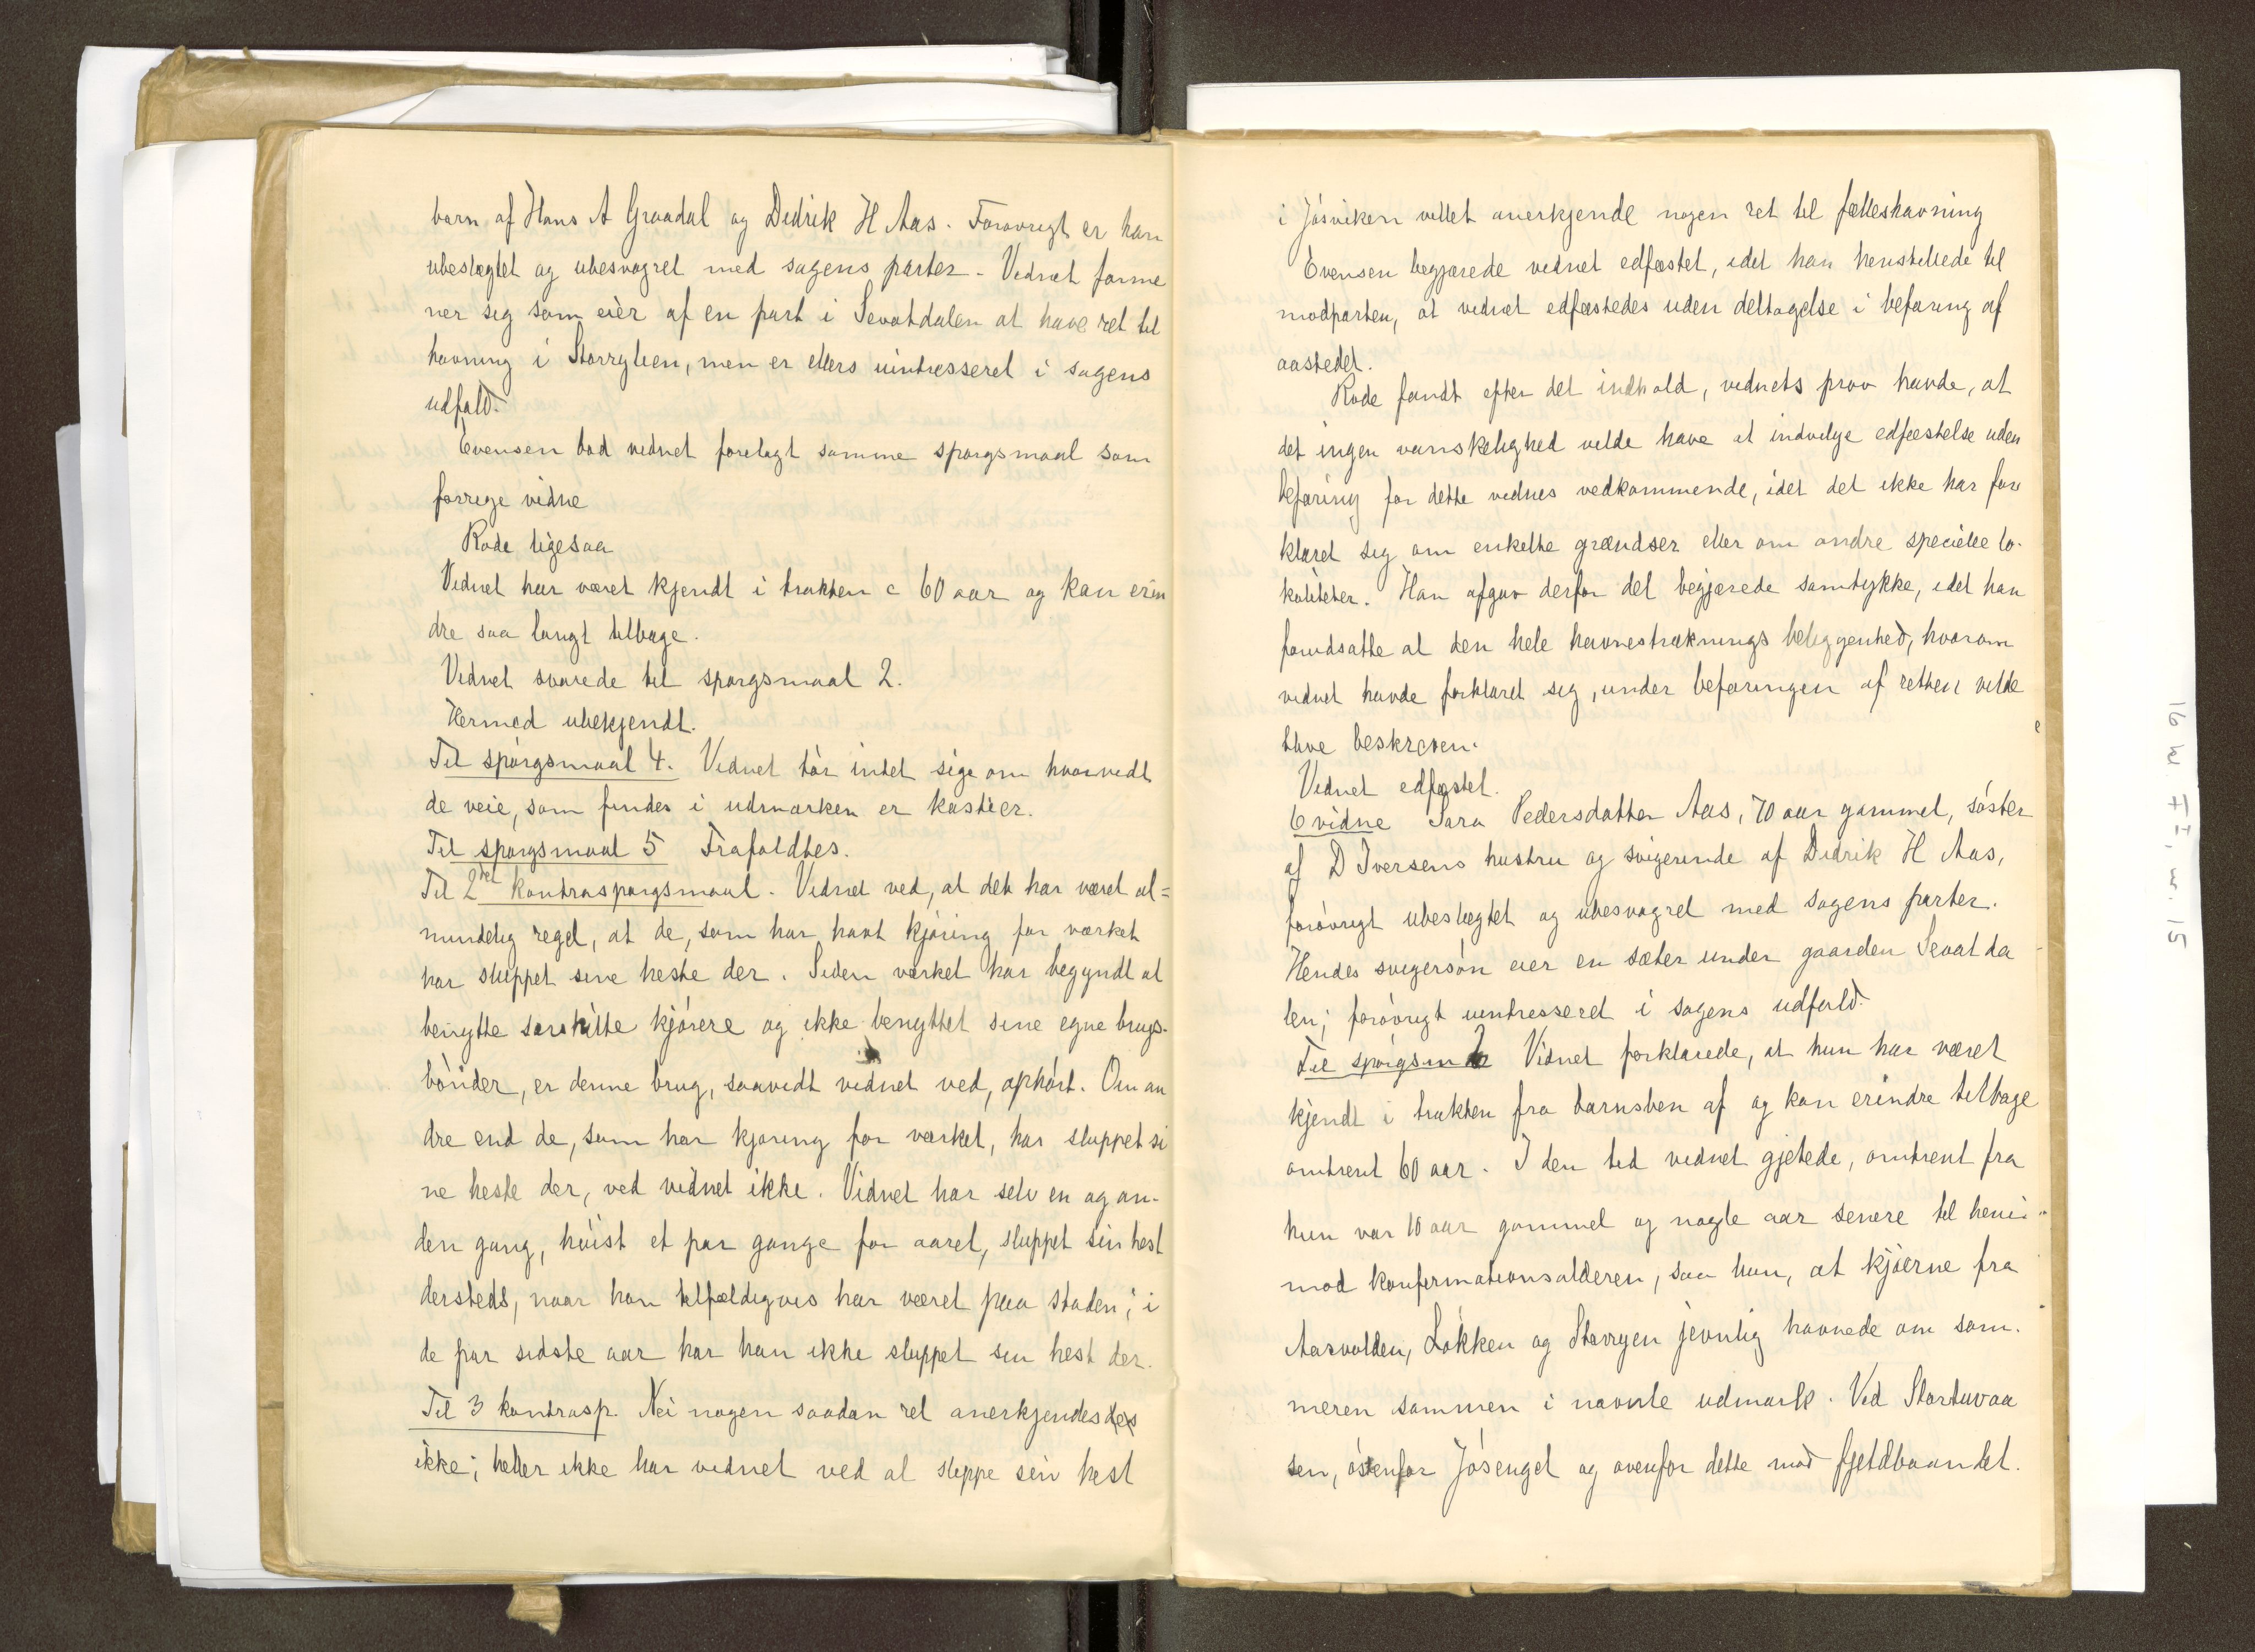 barn af Hans A Graadal og Didrik H Aas. Forøvrigt er han
ubeslægtet og ubesvogret med sagens parter. Vidnet forme
ner sig som eier af en part i Sevatdalen at have ret til
havning i Storrylien, men er ellers uintresseret i sagens
udfald.
Evensen bad vidnet forelagt samme spørgsmaal som
forrige vidne
Rode ligesaa
Vidnet har været kjendt i trakten c 60 aar og kan erin
dre saa langt tilbage.
Vidnet svarede til spørgsmaal 2.
Hermed ubekjendt.
Til spørgsmaal 4. Vidnet tør intet sige om hvorvidt
de veie, som findes i udmarken er kastier.
Til spørgsmaal 5 Frafaldtes.
Til 2det kontraspørgsmaal. Vidnet ved, at det har været al=
mindelig regel, at de, som har havt kjøring for værket
har sluppet sine heste der. Siden værket har begyndt at
benytte særskilte kjørere og ikke benyttet sine egne brugs-
bønder, er denne brug, saavidt vidnet ved, ophørt. Om an
dre end de, som har kjøring for værket, har sluppet si
ne heste der, ved vidnet ikke. Vidnet har selv en og an-
den gang, høist et par gange for aaret, sluppet sin hest
dersteds, naar han tilfældigvis har været paa staden; i
de par sidste aar har han ikke sluppet sin hest der.
Til 3 kontrasp. Nei nogen saadan ret anerkjendes des
ikke; heller ikke har vidnet ved at slippe sin hest
i Jøsviken villet anerkjende nogen ret til fælleshavning
Evensen begjærede vidnet edfæstet, idet han henstillede til
modparten, at vidnet edfæstedes uden deltagelse i befaring af
aastedet.
Rode fandt efter det indhold, vidnets prov havde, at
det ingen vanskelighed vilde have at indvilge edfæstelse uden
befaring for dette vidnes vedkommende, idet det ikke har for
klaret sig om enkelte grændser eller om andre specielle lo-
kaliteter. Han afgav derfor det begjærede samtykke, idet han
forudsatte at den hele havnestræknings beliggenhed, hvorom
vidnet havde forklaret sig, under befaringen af retten vilde
blive beskreven.
Vidnet edfæstet.
6 vidne Sara Pedersdatter Aas, 70 aar gammel, søster
af D Iversens hustru og svigerinde af Didrik H Aas,
forøvrigt ubeslægtet og ubesvogret med sagens parter.
Hendes svigersøn eier en sæter under gaarden Sevatda
len; forøvrigt uintresseret i sagens udfald.
Til spørgsm 2 Vidnet forklarede, at hun har været
kjendt i trakten fra barnsben af og kan erindre tilbage
omtrent 60 aar. I den tid vidnet gjetede, omtrent fra
hun var 10 aar gammel og nogle aar senere til heni-
mod konfirmationsalderen, saa hun, at kjøerne fra
Aasvolden, Løkken og Storryen jevnlig havnede om som-
meren sammen i nævnte udmark. Ved Stortuvaa
sen, østenfor Jøsenget og ovenfor dette mod fjeldbaandet.
16 M 7 I, nr. 15